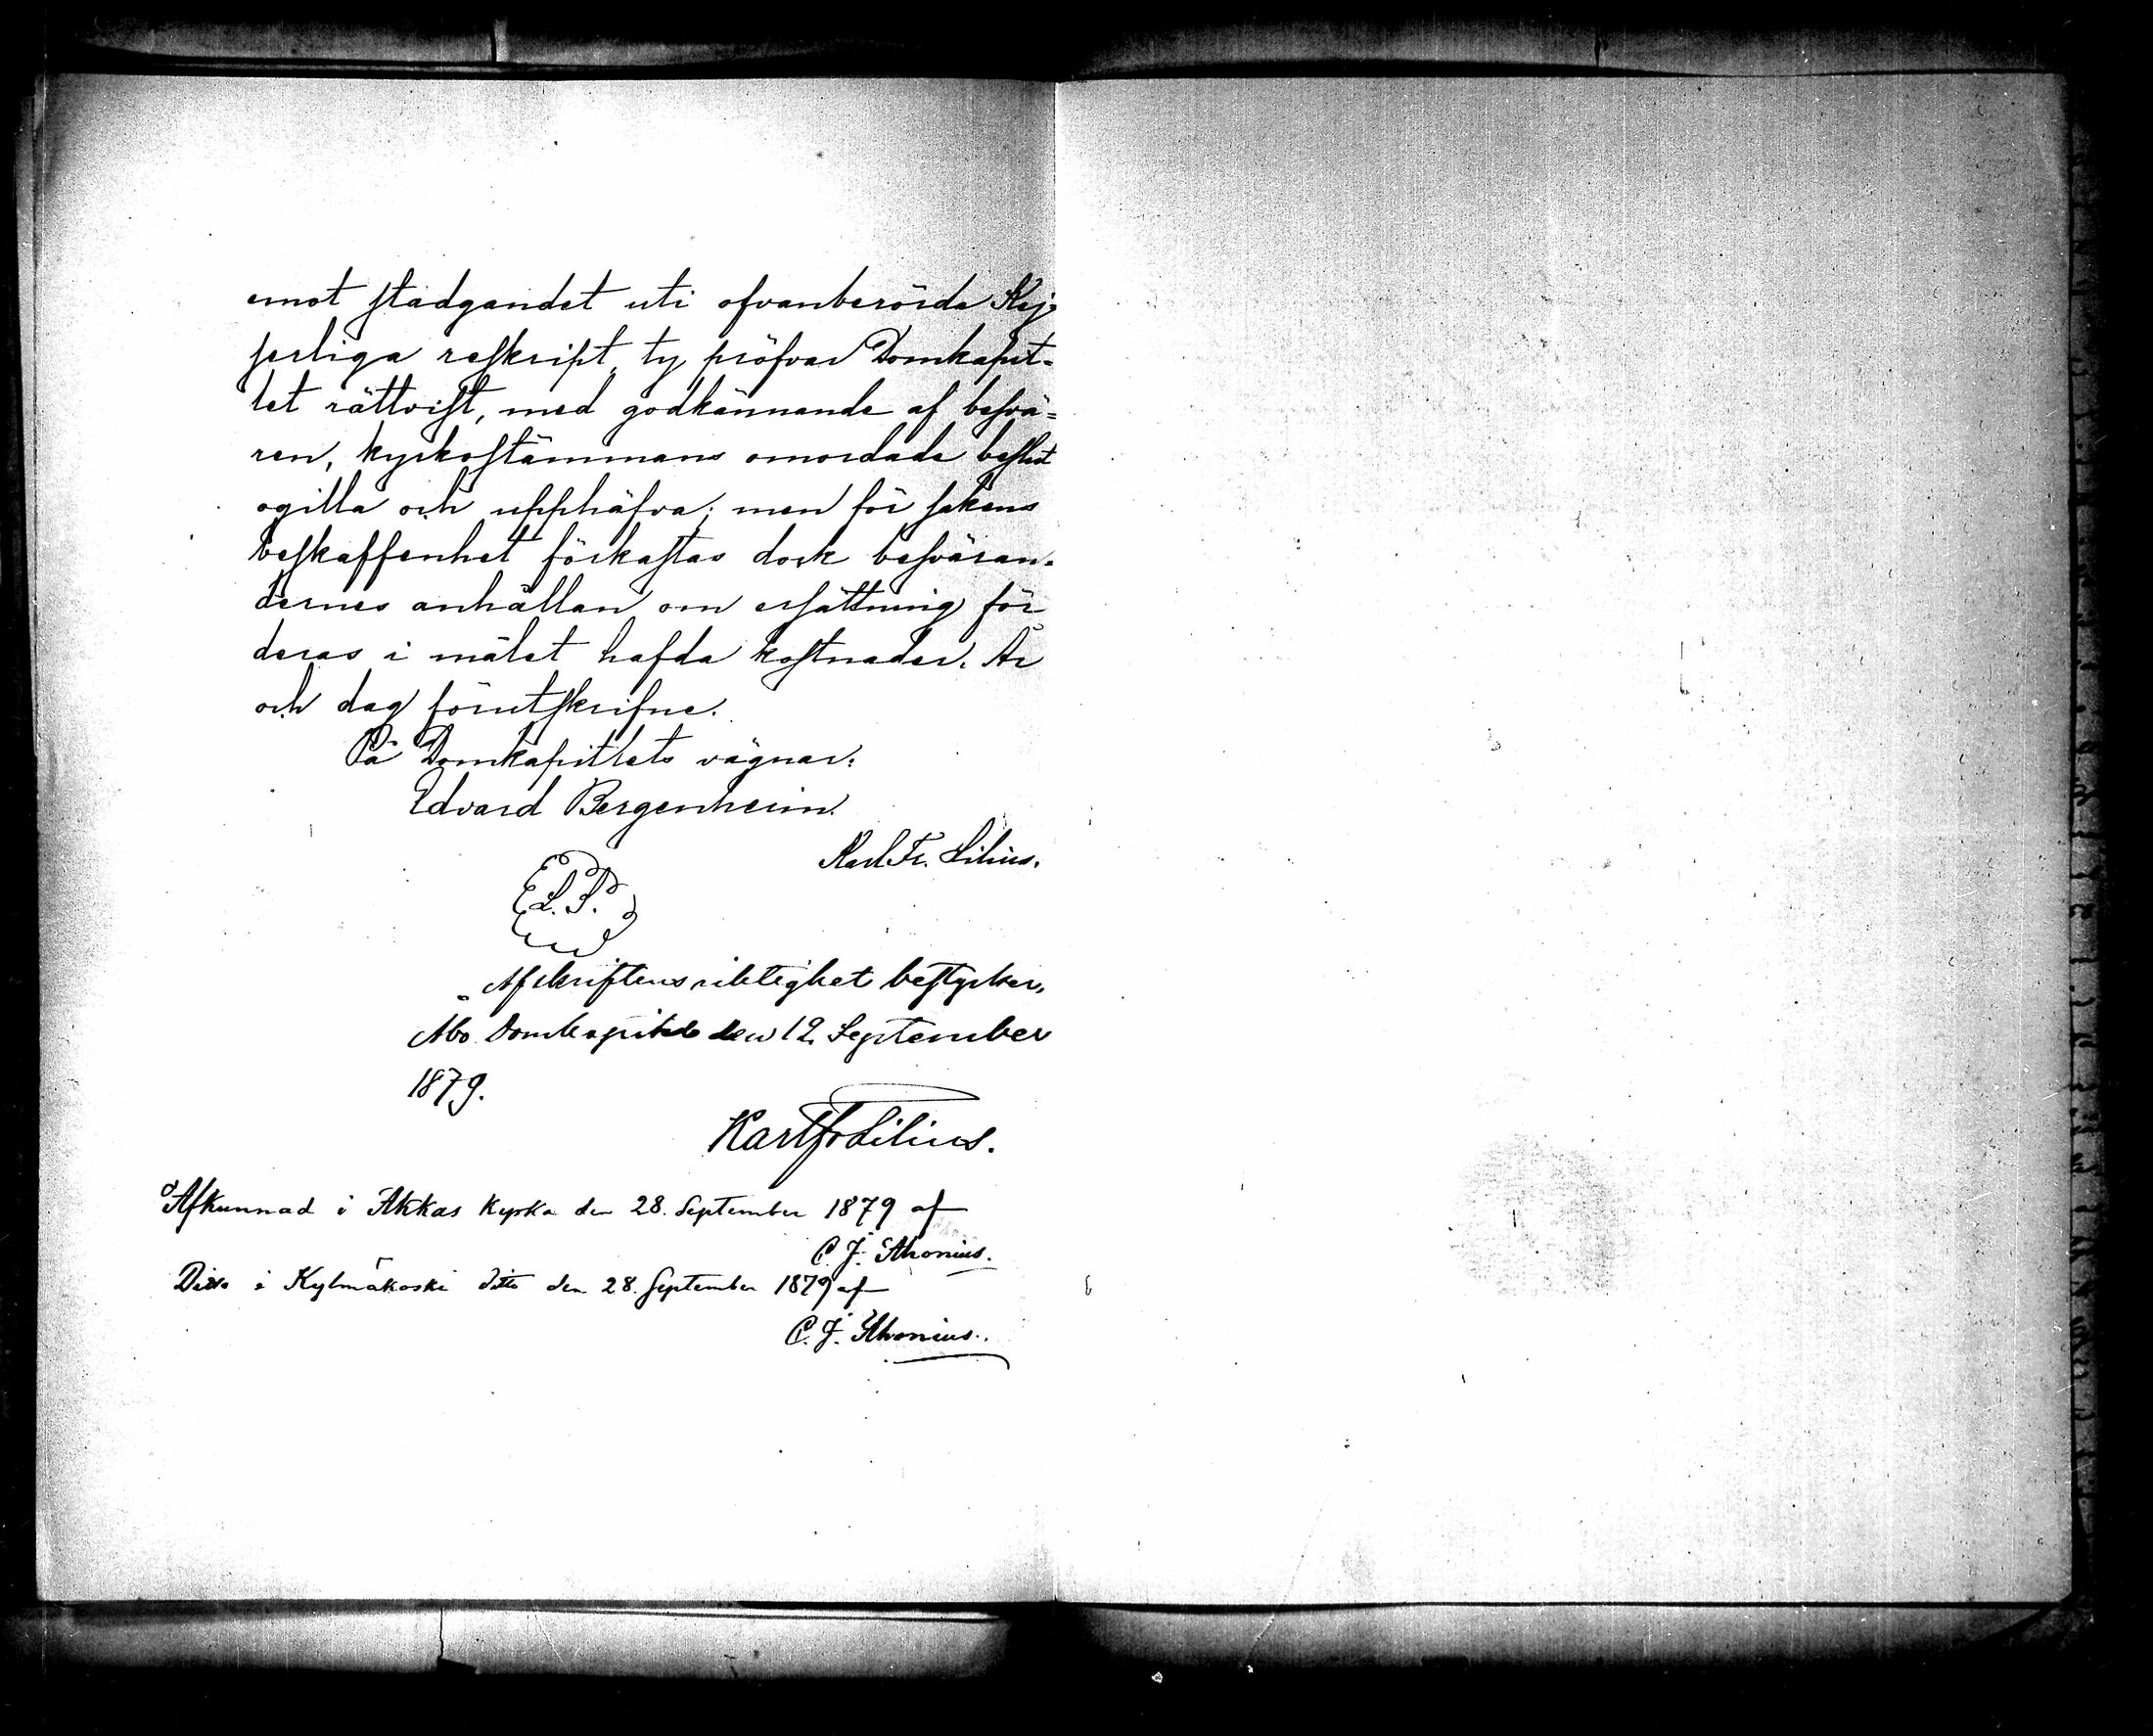 emot stadgandet uti ofvanberörda Kej-
serliga reskript, ty pröfvar Domkapit-
let rättvist, med godkännande af besvä-
ren, kyrkostämmans omordade beslut
ogilla och upphäfva; men för sakens
beskaffenhet förkastas dock besväran-
dernes anhållan om ersättning för
deras i målet hafda kostnader. År
och dag förutskrifne.
På Domkapitlets vägnar:
Edvard Bergenheim.
Karl Fr. Lilius.
L. S.
Afskriftens riktighet bestyrker,
Åbo Domkapitel den 12 September
1879.
Karl Fr Lilius.
Afkunnad i Akkas kyrka den 28. September 1879 af
C. J. Ahonius.
Ditto i Kylmäkoski ditto den 28. September 1879 af
C. J. Ahonius.